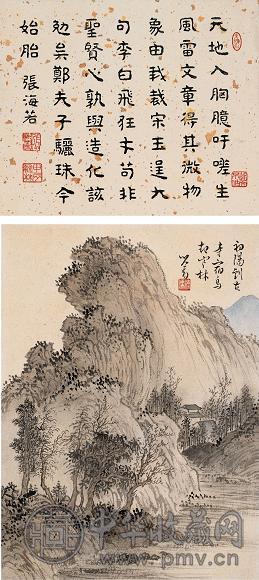 天地入胸臆吁嗟生
風雷文章得其微物
象由我裁宋玉逞大
句李白飛狂才苟非
聖賢心孰與造化該
勉矣鄭夫子驪珠今
始胎 張海若
初陽到古
寺宿鳥
起寒林
心畬
中华收藏网
www.pmv.cn